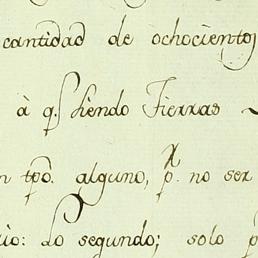 cantidad de ochocientos
à q. siendo Tierras
n tpõ. alguno, p.r no ser
io: Lo segundo; solo p